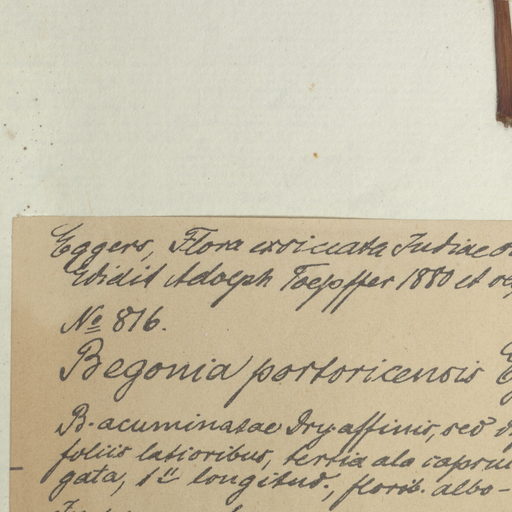 Eggers, Flora exsiccata Indiae
Edidit Adolph Toepffer 1880 et
No 816.
Begonia portoricensis
B. acuminatae Dry. affinis, sed
foliis latioribus, tertia ala capsu
gata, 1" longitud., florib. albo-